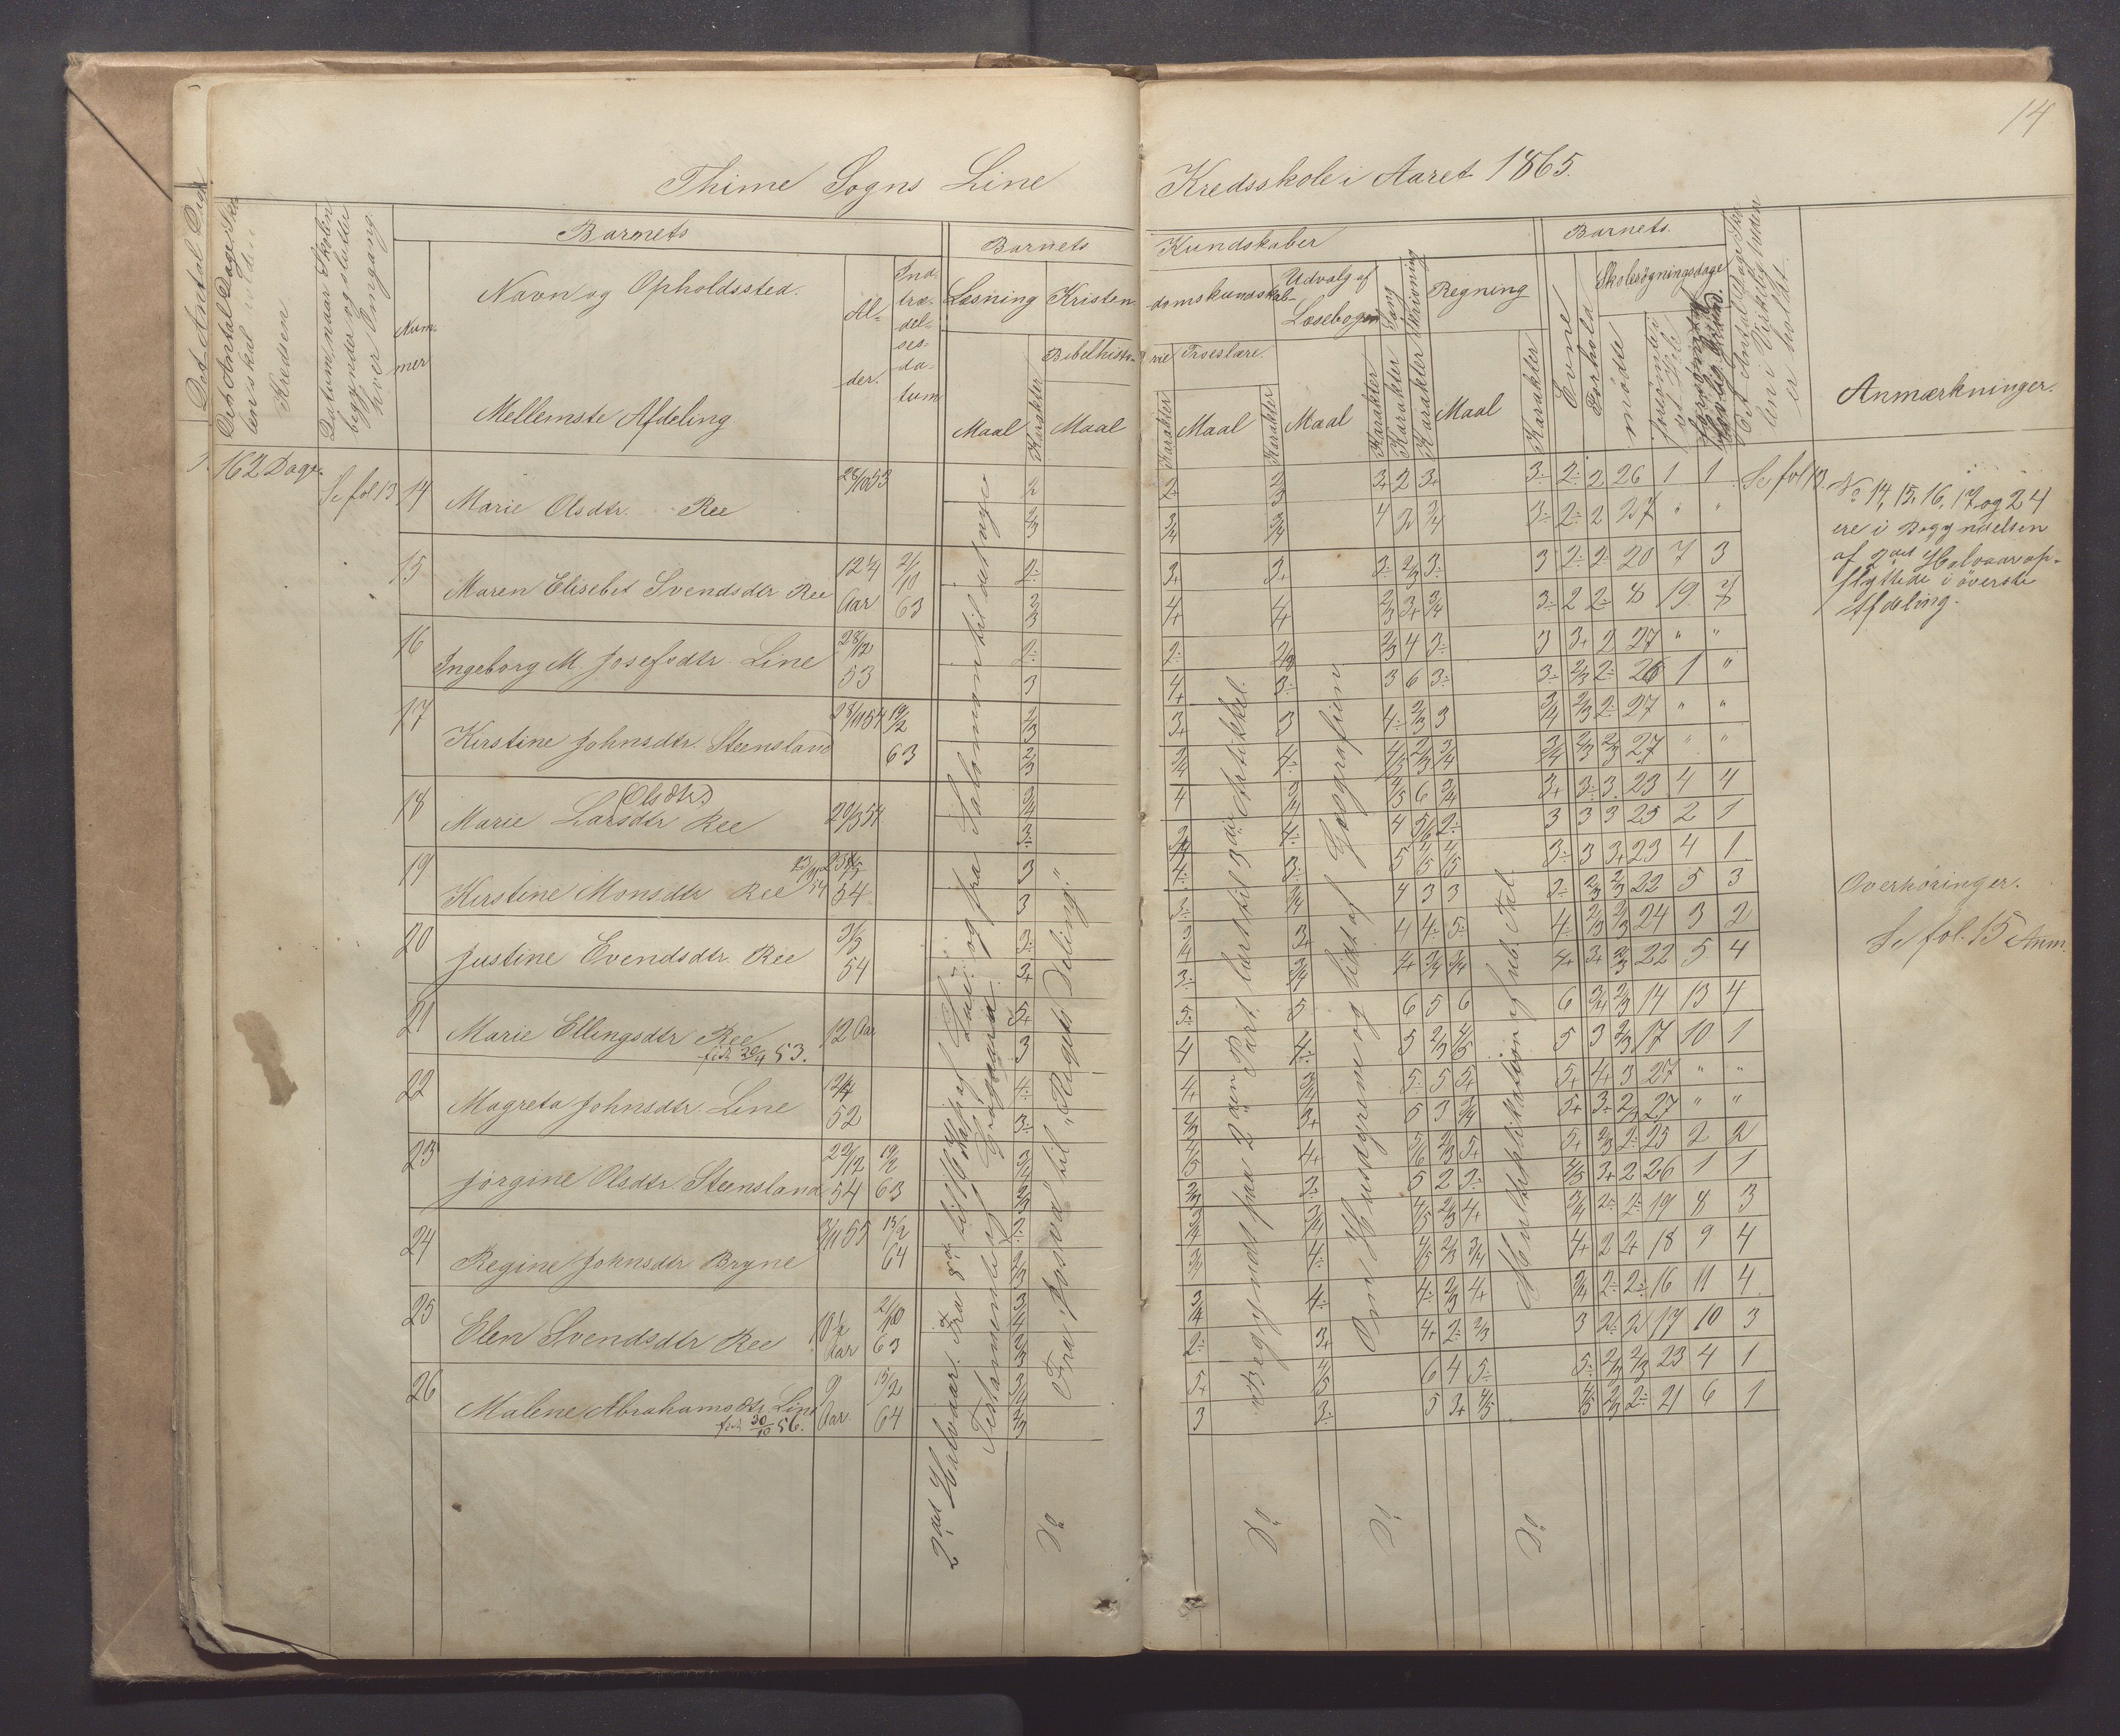 14
Thime Sogns Line Kredsskole i Aaret 1865.
Det Antal Dage Skolen skal holdes i Kredsen
Datum, naar Skolen begynder og slutter hver Omgang
Barnets
Nummer
Navn og Opholdssted.
Mellemste Afdeling
Alder.
Indtrædelsesdatum
Barnets Kundskaber
Læsning
Kristendomskundskab
Udvalg af Læsebogen
Sang
Skrivning
Regning
Bibelhistorie
Troeslære.
Maal
Karakter
Maal
Karakter
Maal
Karakter
Maal
Karakter
Karakter
Karakter
Maal
Karakter
Barnets.
Evne
Forhold
Skolesøgningsdage
mødte
Anmærkninger.
162 Dage.
Se fol 13
14 Marie Olsdtr. Ree 28/10 53
2 2 2 3+ 2 3+ 3÷ 2÷ 2 26 1 1 Se fol 13.
2/3 3/4 3/4 4 2 3/4 3÷ 2÷ 2 27 " "
15 Maren Elisebet Svendsdtr Ree 12 1/4 Aar 2/10 63
2÷ 3+ 3+ 3÷ 2/3 3÷ 3 2÷ 2÷ 20 7 3
2/3 4+ 4+ 2/3 3+ 3/4 3÷ 2 2÷ 8 19 7
16 Ingeborg M. Josefsdtr. Line 28/12 53
2÷ 2÷ 2/3 2/3 4 3÷ 3 3+ 2 27 " "
3 4+ 3÷ 3 6 3÷ 3÷ 2/3 2÷ 26 1 "
17 Kirstine Johnsdtr. Steensland 28/11 54 19/2 63
2/3 3+ 3 4÷ 2/3 3 3/4 2/3 2÷ 27 " "
2/3 3/4 4÷ 4/5 2/3 3/4 3/4 2/3 2/3 27 " "
18 Marie Larsdtr Ree (Olsdtr) 20/3 54
3/4 4 3/4 4/5 6 3/4 3+ 3÷ 3 23 4 4
3÷ 3/4 4÷ 4 5/6 2÷ 3 3 3 25 2 1
19 Kirstine Monsdtr Ree 54
3 4÷ 3÷ 5 4/5 4/5 3÷ 3 3+ 23 4 1
3 3÷ 3/4 4 3 3 3÷ 2/3 2/3 22 5 3
20 Justine Evendsdtr. Ree 54
3÷ 3/4 3+ 4 4÷ 5÷ 4÷ 2/3 2/3 24 3 2
3+ 3÷ 3/4 4+ 3/4 3/4 4+ 3+ 2/3 22 5 4
21 Marie Ellingsdtr Ree 12 Aar
fød 20/4 53.
5+ 5÷ 5 6 5 6 6 3/4 2/3 14 13 4
3 4 4÷ 5 2/3 4/5 5 3 2/3 17 10 1
22 Magreta Johnsdtr. Line 52
4÷ 4+ 3/4 5÷ 5 5+ 5+ 4+ 3 27 " "
3÷ 2/3 3+ 5 3 3/4 5+ 3÷ 2/3 27 " "
23 Jørgine Olsdtr. Steensland 22/12 54 19/2 63
3/4 4/5 4+ 5/6 2/3 5+ 5+ 2/3 2÷ 25 2 2
2/3 2/3 3÷ 5 2 2÷ 4/5 3+ 2 26 1 1
24 Regine Johnsdtr Bryne 3/11 55 15/2 64
2÷ 3/4 3/4 4/5 2/3 4+ 3/4 2÷ 2÷ 19 8 3
2/3 2/3 4÷ 4/5 2/3 3/4 4+ 2 2+ 18 9 4
25 Elen Svendsdtr Ree 10 1/2 Aar 2/10 63
3/4 3/4 4÷ 4÷ 2/3 4+ 3/4 2÷ 2÷ 16 11 4
2/3 2÷ 3+ 4+ 2÷ 2/3 3 2÷ 2 17 10 3
26 Malene Abrahamsdtr. Line 9 Aar 15/2 64
fød 30/10 56.
3/4 5+ 4/5 6 4 5÷ 5÷ 2/3 2/3 23 4 1
2/3 3 3÷ 5 3+ 4/5 4/5 2/3 2÷ 21 6 1
og fra Salomon til det nye
Testamente og
2det Halvaar. Fra
Fra "Josva" til "Rigets Deling."
Do
Begyndt paa 2den Part. lært til 3die Artikkel.
Do
Om Husdyrene og lidt af Geografien
Do
Multiplikation af hele Tal
Do
No 14, 15, 16, 17 og 24
ere i Begyndelsen
af 2det Halvaar op-
flyttede i øverste
Afdeling.
Overhøringer.
Se fol. 15 Anm.